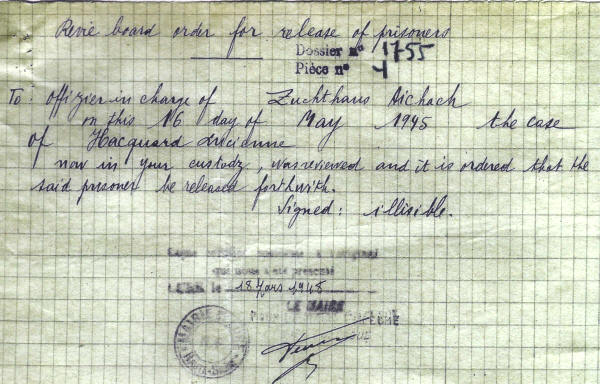 Revie board order for release of prisoners
Dossier n° 1755
Pièce n° 4
To: offizier in charge of Zuchthaus Aichach
on this 16 day of May 1945 the case
of Hacquard Lucienne
now in your custody, was reviewed and it is ordered that the
said prisoner be released forthwith.
Signed: illisible.
présenté
le 18 Mars 1948
LE MAIRE
MAIRIE